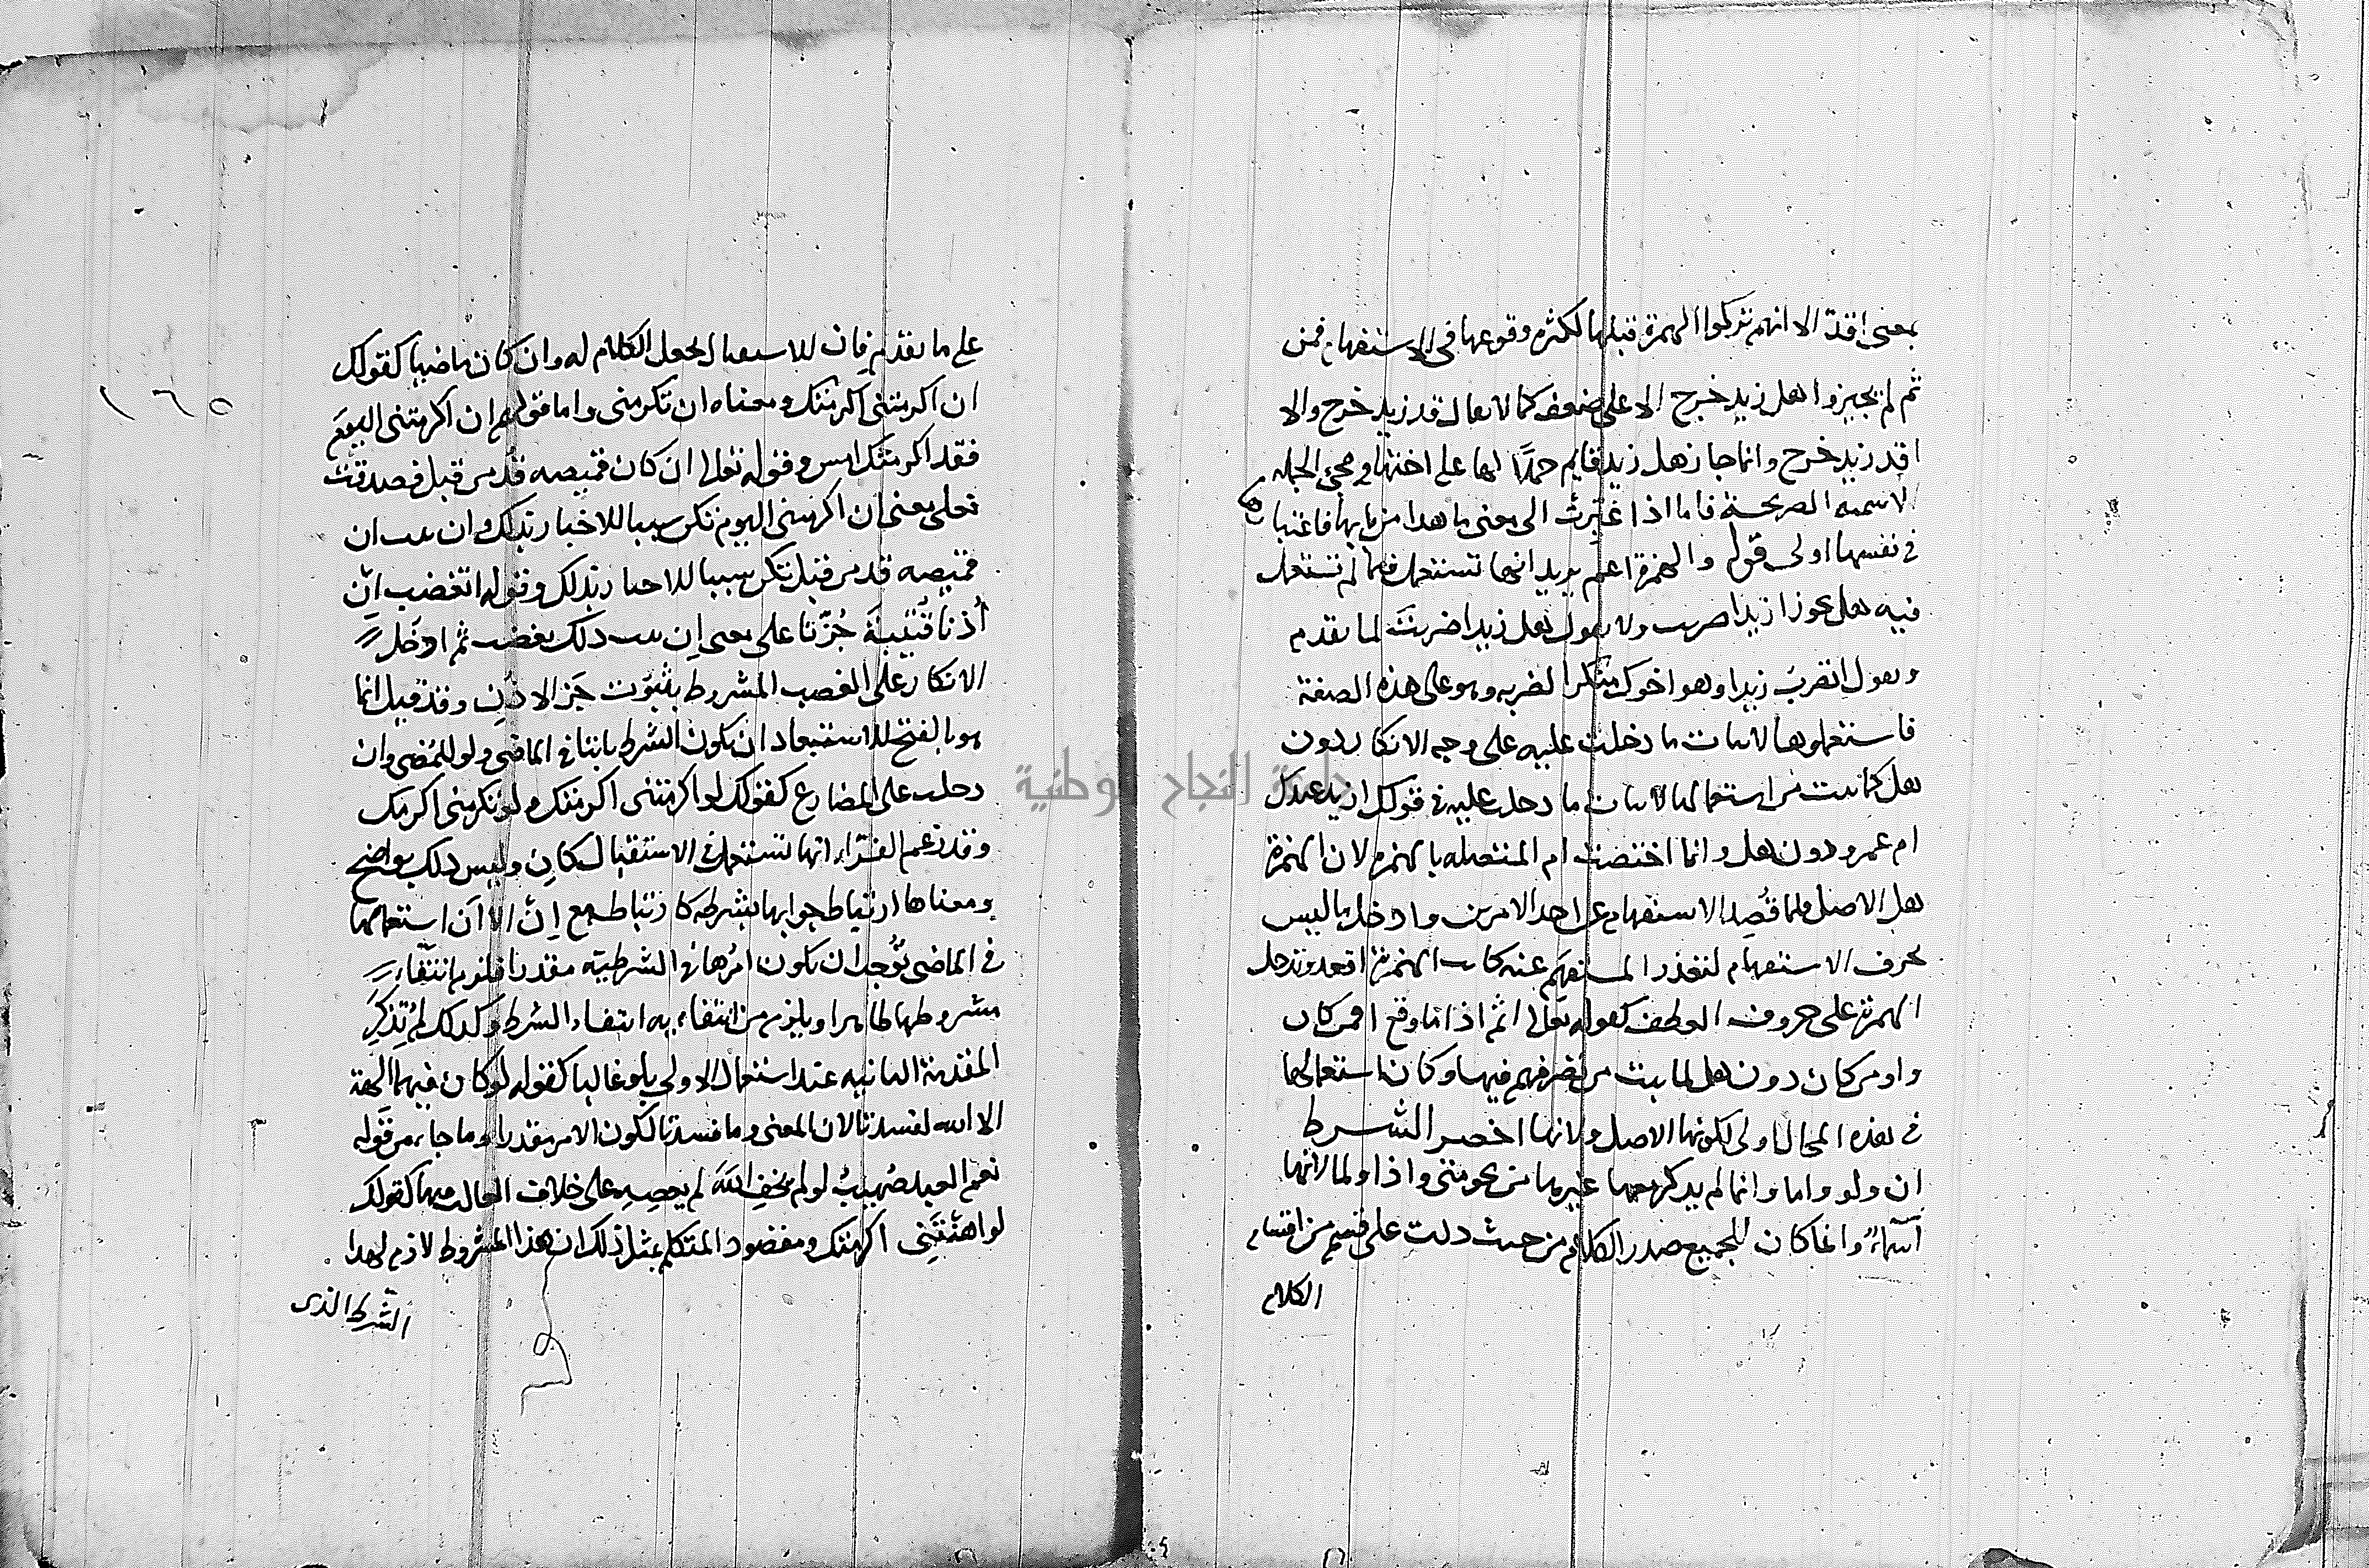 بمعنى اقد الا انهم تركوا الهمزة قبلها لكثرة وقوعها في الاستفهام فمن
ثم لم يجيزوا هل زيد خرج الا على ضعف كما لا يقال قد زيد خرج ولا
اقد زيد خرج وانما جاز هل زيد قايم حملا لها على اختها في مجي الجمله
الاسميه الصريحة فاما اذا غيرت الى معنى ما هذا من بابها فاعتبارها
في نفسها اولى قوله والهمزة اعم يريد انها تستعمل فيما لم تستعمل
فيه هل نحو ازيدا ضربت ولا يقول هل زيدا ضربت لما تقدم
وتقول اتضرب زيدا وهو اخوك منكرا لضربه وهو على هذه الصفة
فاستعملوها لاثبات ما دخلت عليه على وجه الانكار دون
هل كما ثبت من استعمالها لاثبات ما دخلت عليه في قولك ازيد عندك
ام عمرو دون هل وانما اختصت ام المتصله بالهمزه لان الهمزة
هي الاصل فلما قصد الاستفهام عن احد الامرين وادخل ما ليس
بحرف الاستفهام لتعذر المستفهم عنه كانت الهمزة اقعد وتدخل
الهمزة على حروف العطف كقوله تعالى اثم اذا ما وقع افمن كان
واومن كان دون هل لما ثبت من تصرفهم فيها وكان استعمالها
في هذه المحال اولى لكونها الاصل ولانها اخصر الشرط
ان ولو واما وانما لم يذكر معها غيرها من نحو متى واذا ولما لانها
اسماء وانما كان للجميع صدر الكلام من حيث دلت على قسم من اقسام
الكلام
١٦٥
على ما تقدم فان للاستقبال تجعل الكلام له وان كان ماضيا كقولك
ان اكرمتني اكرمتك ومعناه ان تكرمني واما قولهم ان اكرمتني اليوم
فقد اكرمتك امس وقوله تعالى ان كان قميصه قد من قبل فصدقت
فعلى معنى ان اكرمتني اليوم تكن سببا للاخبار بذلك وان ثبت ان
قميصه قد من قبل تكن سببا للاخبار بذلك وقوله اتغضب ان
أذنا قتيبة حزتا على معنى ان ثبت ذلك تغضب ثم ادخل
الانكار على الغضب المشروط بثبوت حز الاذن وقد قيل انما
هو بالفتح للاستبعاد ان يكون الشرط ثابتا في الماضي ولو للمضي وان
دخلت على المضارع كقولك لو اكرمتني اكرمتك ولو تكرمني اكرمك
وقد زعم الفراء انها تستعمل في الاستقبال كان وليس ذلك بواضح
ومعناها ارتباط جوابها بشرطه كارتباطه مع إن الا ان استعمالها
في الماضي يوجب ان يكون امرها في الشرطيه مقدرا فلزم انتفاء
مشروطها ظاهرا ويلزم من انتفايه انتفاء الشرط وكذلك لم تذكر
المقدمة الثانيه عند استعمال الاولى بلو غالبا كقوله لو كان فيهما الهة
الا الله لفسدتا لان المعنى وما فسدتا لكون الامر مقدرا وما جاء من قوله
نعم العبد صهيب لو لم يخف الله لم يعصه على خلاف الغالب فيها كقولك
لو اهنتني اكرمتك ومقصود المتكلم بمثل ذلك ان هذا المشروط لازم لهذا
الشرط الذي
جامعة النجاح الوطنية